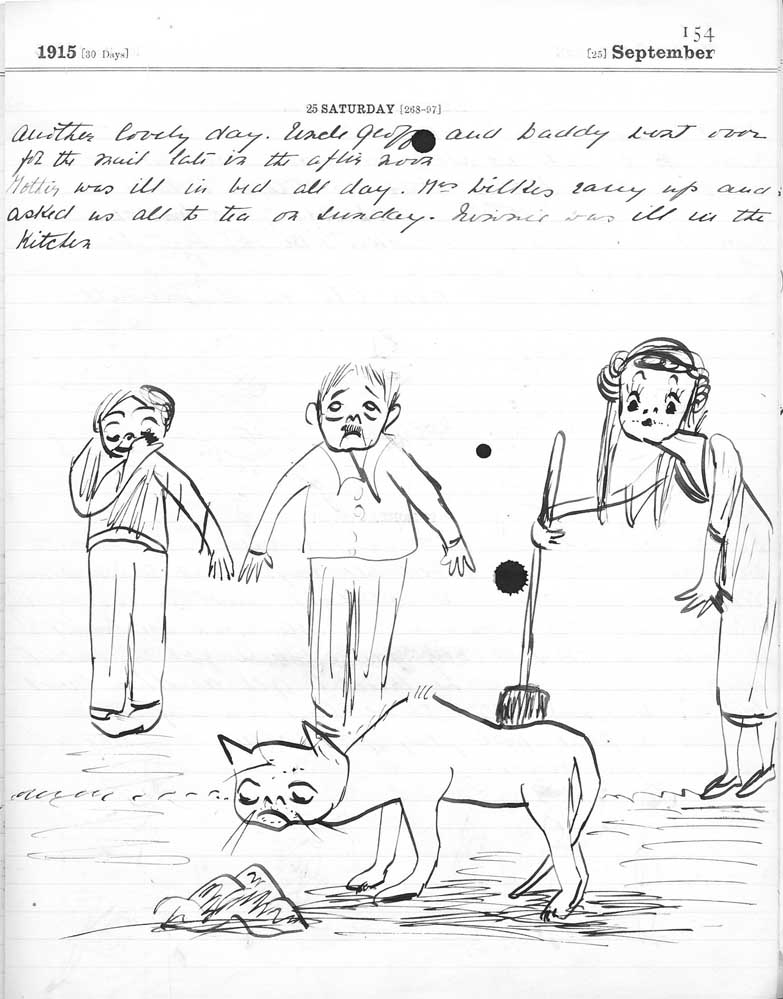 154
1915 [30 Days] [25] September
25 SATURDAY [268-97]
Another lovely day. Uncle Geoff and Daddy went over
for the mail late in the after noon
Mother was ill in bed all day. Mrs Dilkes rang up and
asked us all to tea on Sunday. was ill in the
Kitchen